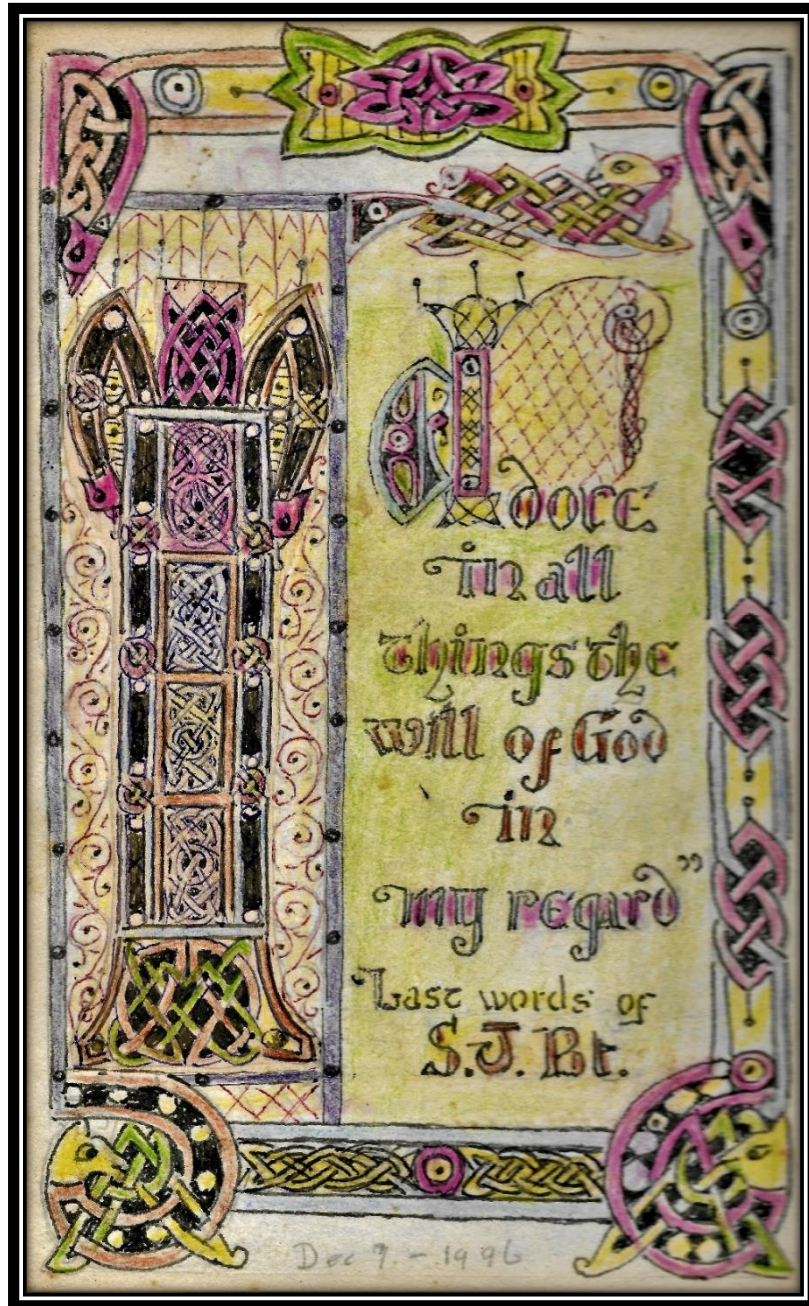 Adore
in all
things the
will of God
in
my regard”
“Last words of
S.J. Bt.
Dec 9. - 1996